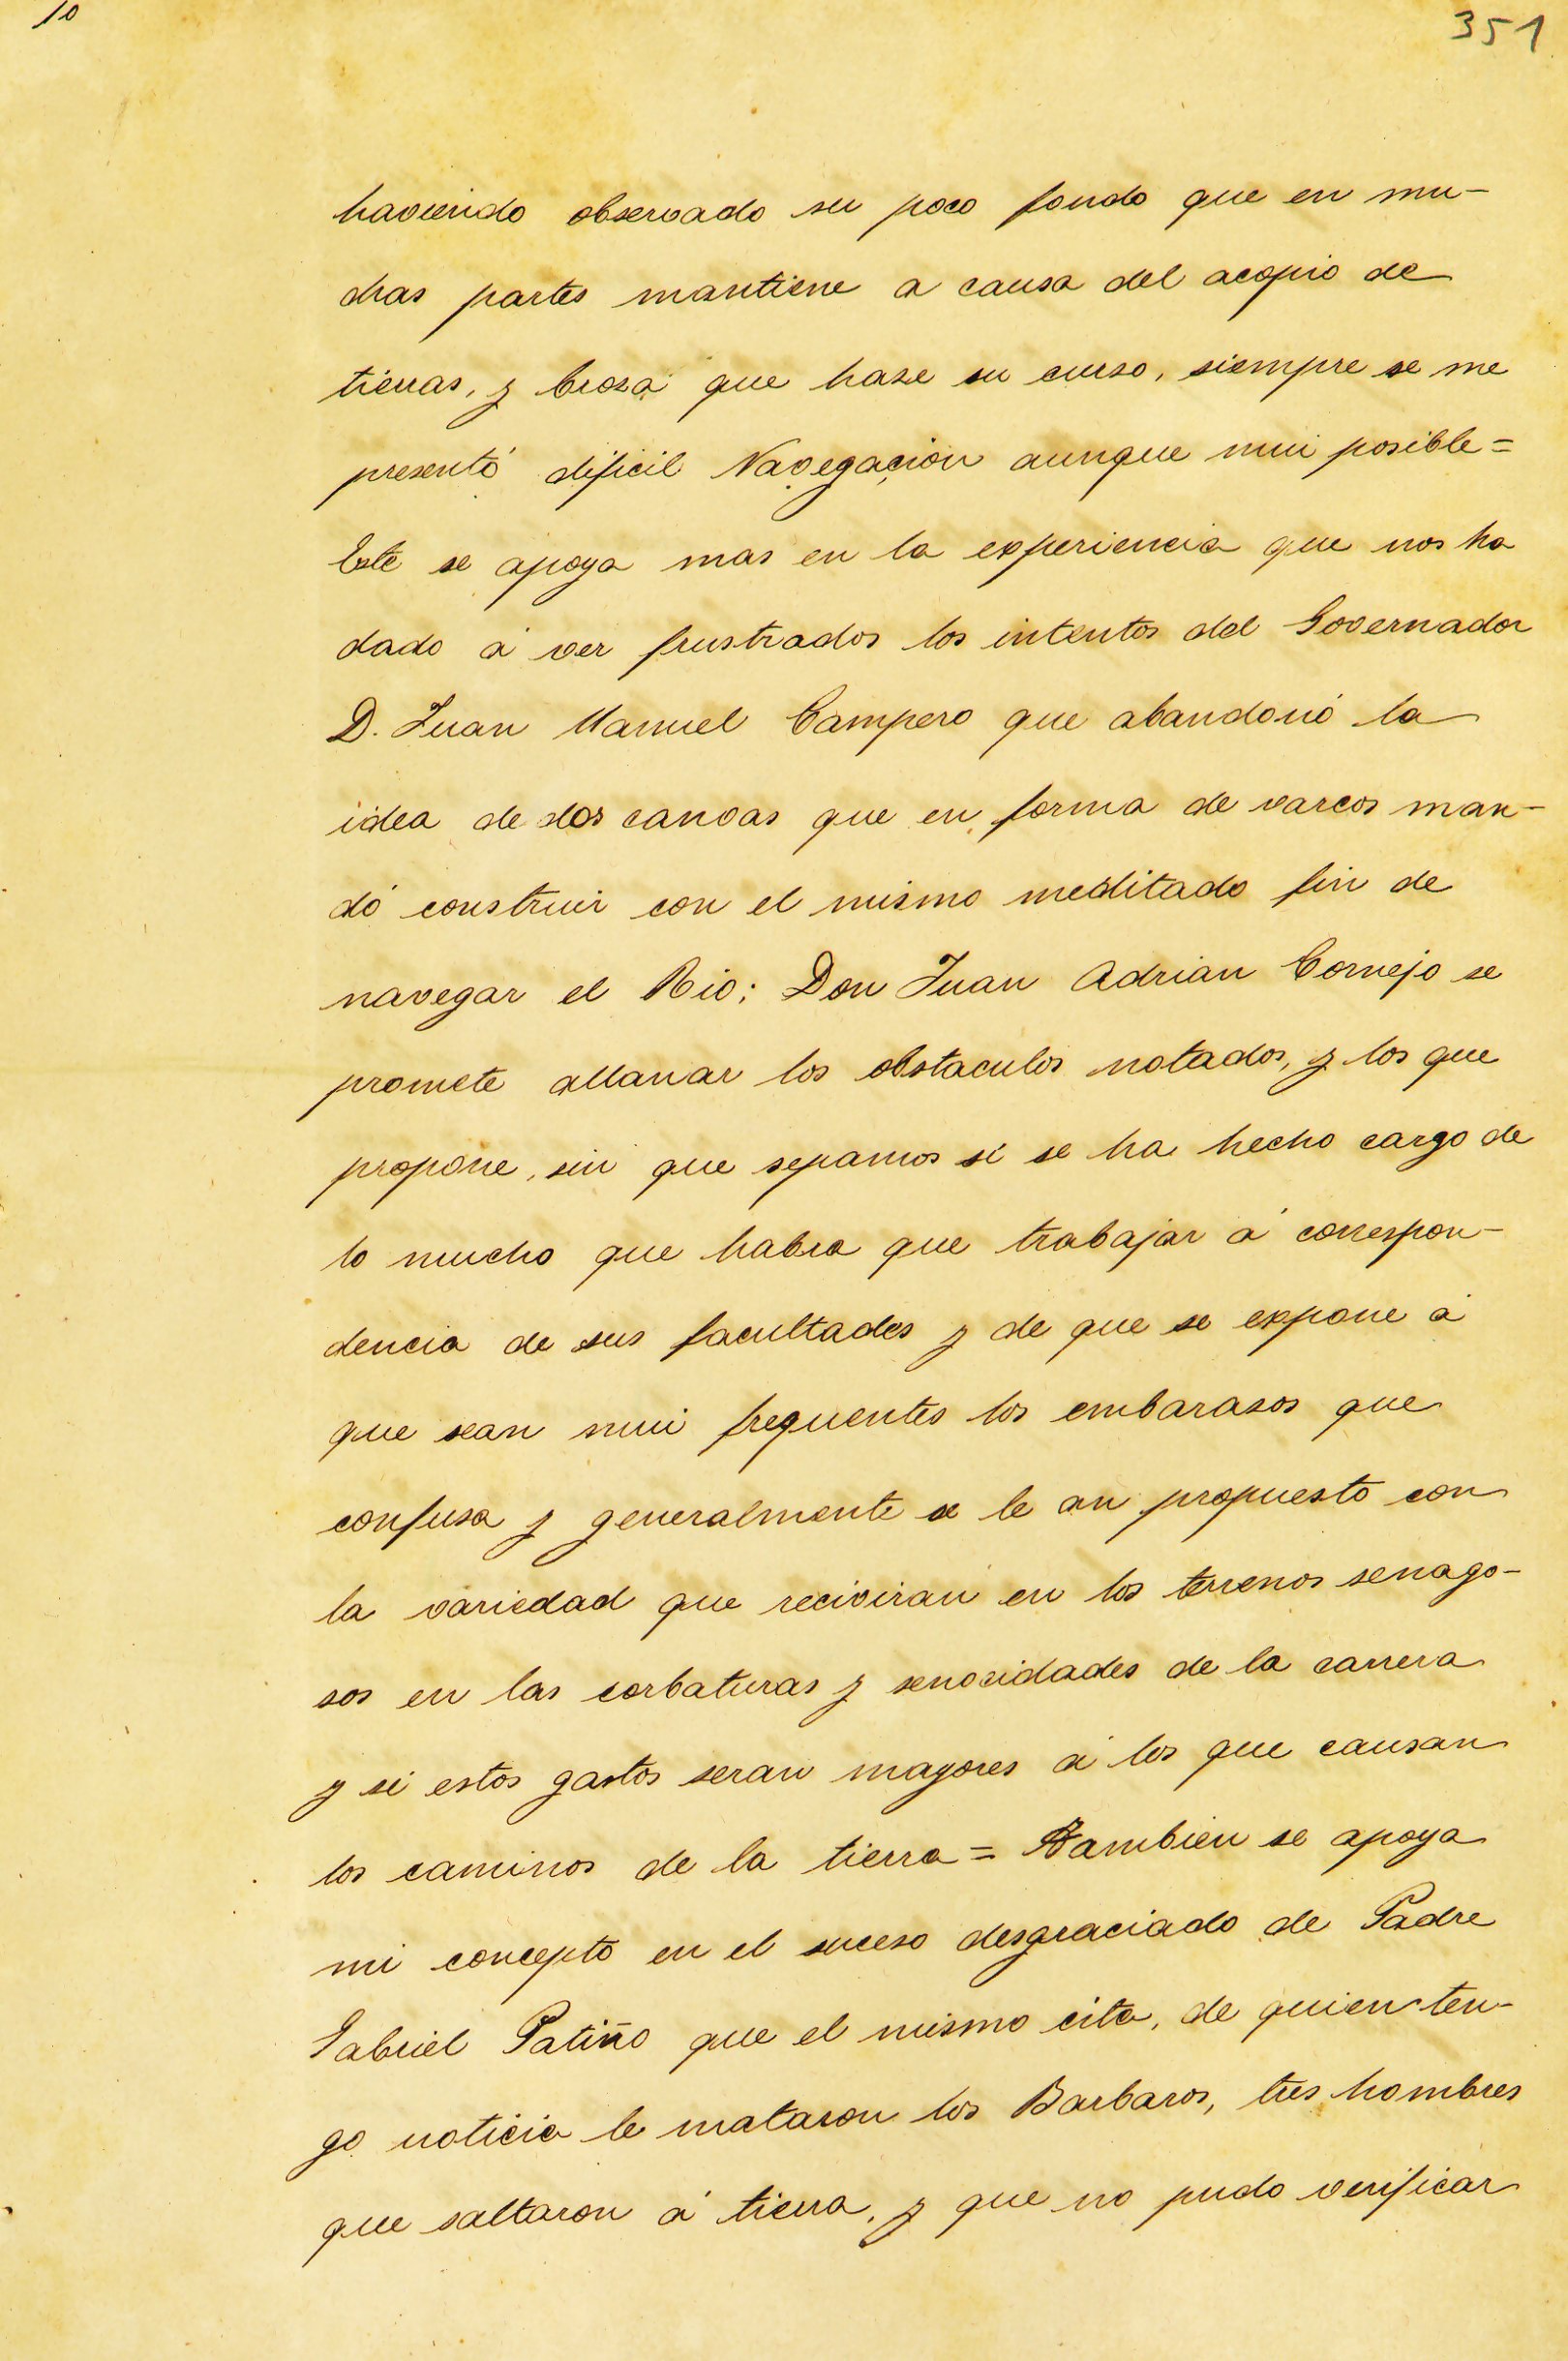 10
351
haviendo observado su poco fondo que en mu-
chas partes mantiene a causa del acopio de
tierras, y broza que hase su curso, siempre se me
presentó dificil Navegación aunque mui posible=
Este se apoya mas en la experiencia que nos ha
dado á ver frustrados los intentos del Governador
D. Juan Manuel Campero que abandonó la
idea de dos canoas que en forma de varcos man-
dó construir con el mismo meditado fin de
navegar el Rio; Don Juan Adrian Cornejo se
promete allanar los obstaculos notados, y los que
propone, sin que sepamos si se ha hecho cargo de
lo mucho que habra que trabajar á correspon-
dencia de sus facultades y de que se expone á
que sean mui frequentes los embarasos que
confusa y generalmente se le an propuesto con
la variedad que reciviran en los terrenos senago-
sos en las corbaturas y senosidades de la carrera
y si estos gastos seran mayores á los que causan
los caminos de la tierra = Tambien se apoya
mi concepto en el suceso desgraciado de Padre
Gabriel Patiño que el mismo cita, de quien ten-
go noticia le mataron los Barbaros, tres hombres
que saltaron á tierra, y que no pudo verificar